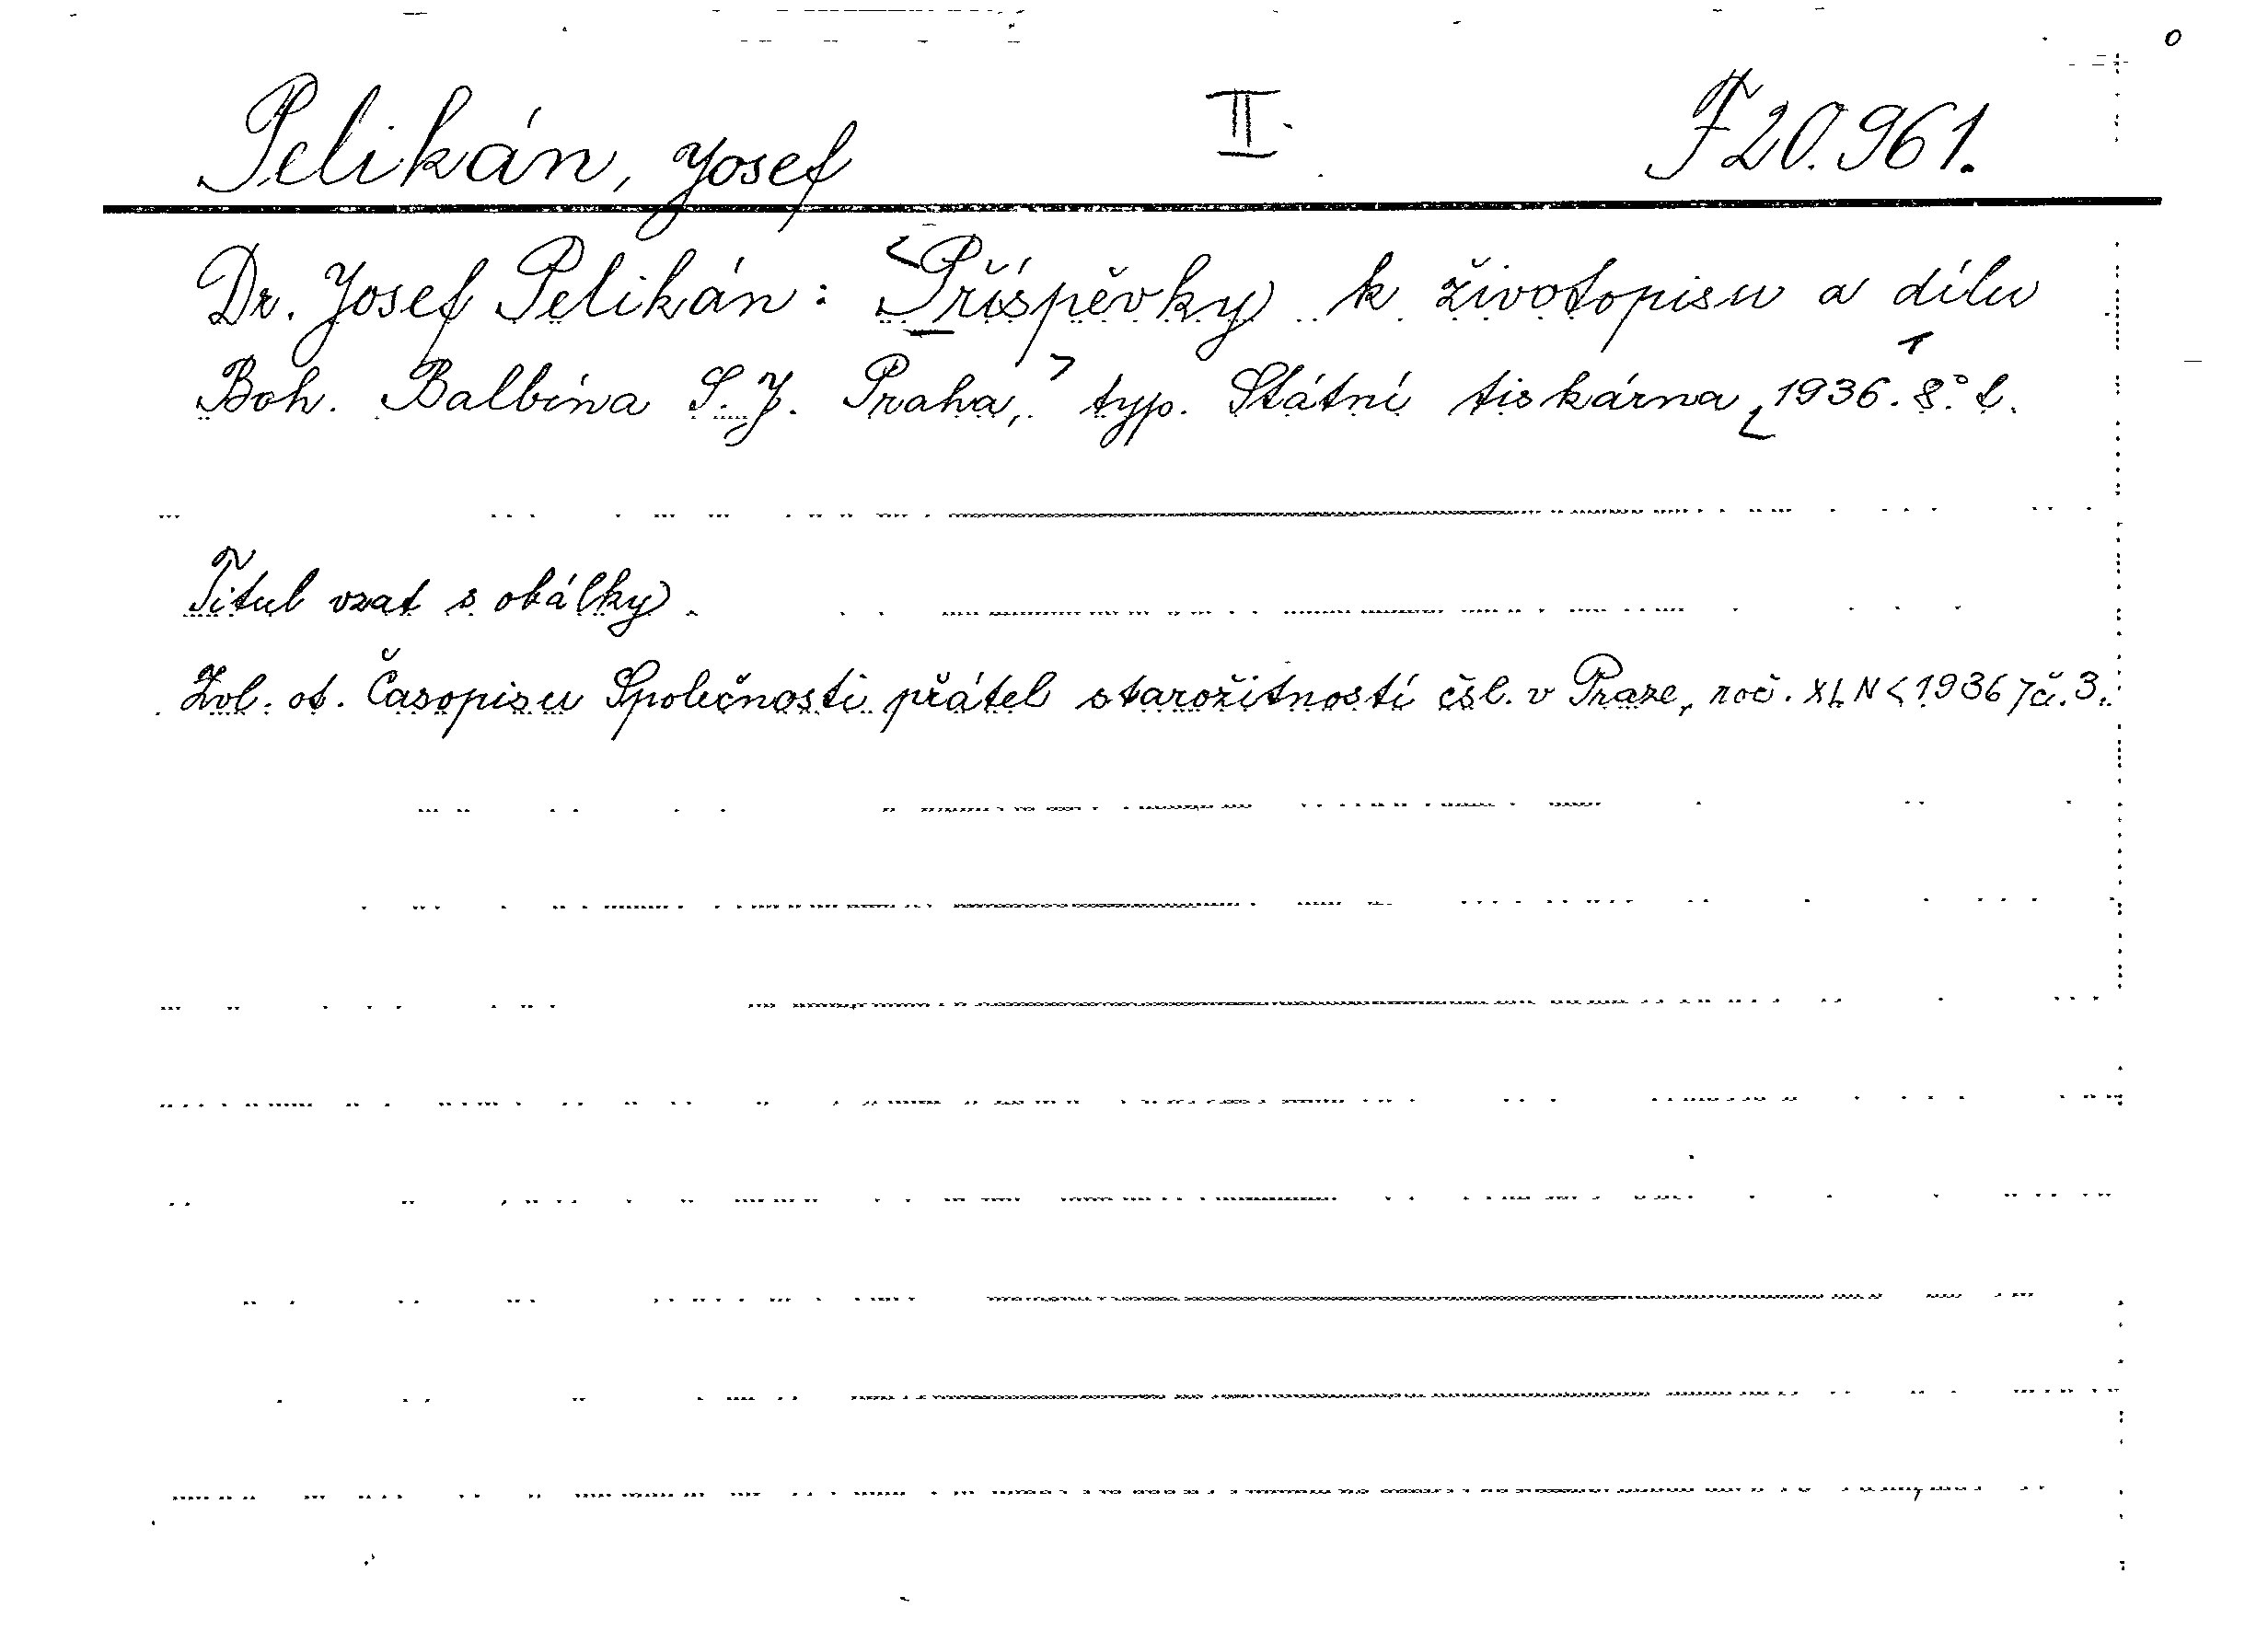 Pelikán, Josef II. F 20.961.
Dr. Josef Pelikán: Příspěvky k životopisu a dílu
Boh. Balbína S. J. Praha, typ. Státní tiskárna 1936. 8°. t.
Titul vzat s obálky.
Zvl. ot. Časopisu Společnosti přátel starožitností čsl. v Praze, roč. <1936> č. 3.